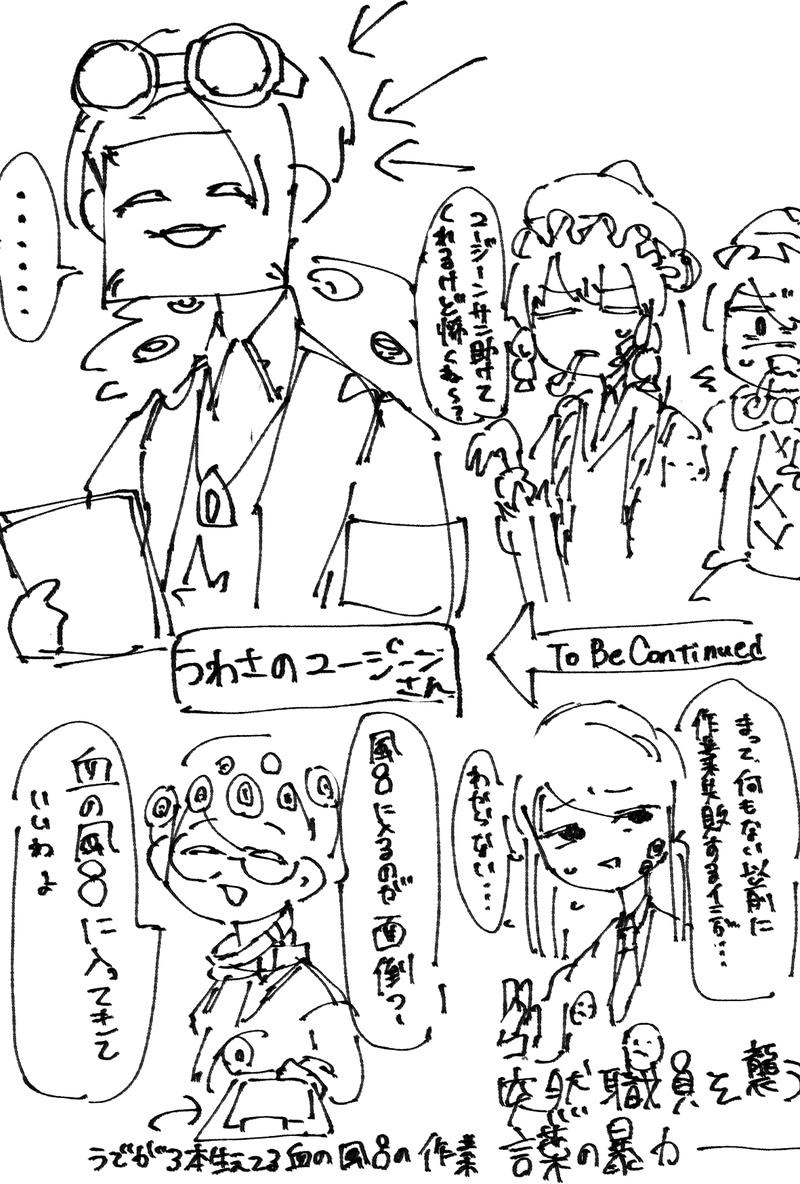 ・・・・・・
ユージーンサン助けて
くれるけど怖くね〜?
うわさのユージーン
さん
To Be Continued
まって、何もない以前に
作業失敗するイミが…
わかんない…
風呂に入るのが面倒っ、
血の風呂に入ってきて
いいわよ
突然職員を襲う
言葉の暴力
うでが3本生えてる血の風呂の作業